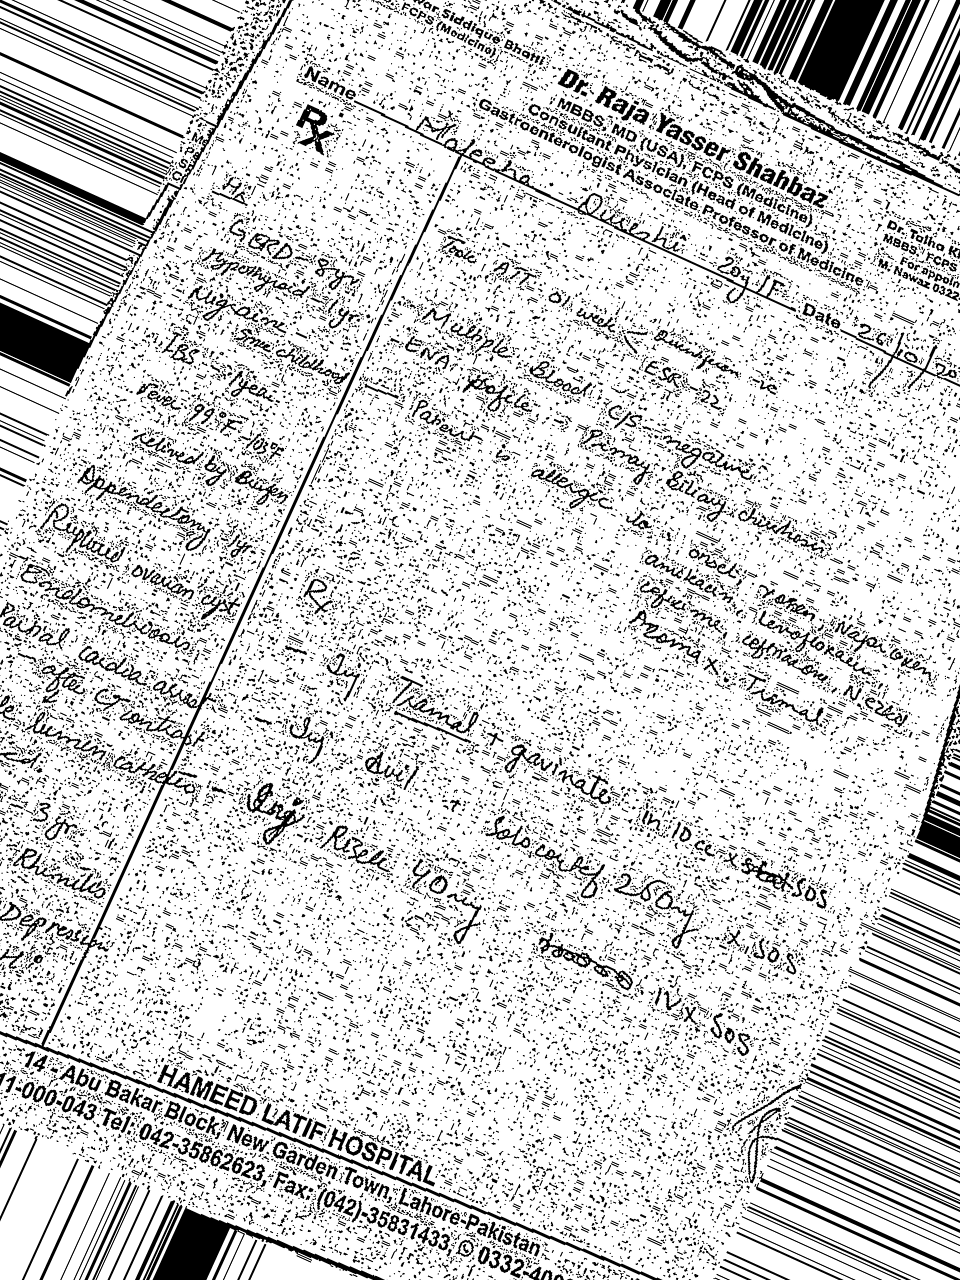 or Siddique Bhatti
FCPS (Medicine)
Dr. Raja Yasser Shahbaz
MBBS, MD (USA), FCPS (Medicine)
Consultant Physician (Head of Medicine)
Gastroenterologist Associate Professor of Medicine
Dr. Talha
MBBS, FCPS
For appoin
M. Nawaz 0322
Name Maleeha Qureshi 20y/F Date 26/10/20
Rx
Hx
GERD - 8 yr
Hypothyroid - 1yr
Migraine -
Since childhood
IBS - 1 year
Fever 99°F - 103°F
relieved by Brufen
Appendectomy 1yr
Ruptured ovarian cyst
Endometriosis
Partial cardiac arrest
- after CT contrast
le lumen catheter
- 3 yr
Rhinitis
Depression
Took ATT 01 week < Quantiferon -ve
ESR - 22
Multiple Blood C/S - negative
ENA profile - Primary Biliary cirrhosis
- Patient is allergic to: onset, Xoren, Naproxen
amikacin, levofloxacin
cefixime, ceftriaxone, Nezkil
Azomax, Tramal
Rx
- Inj Tramal + gavinate in 10 cc x stat SOS
- Inj Avil + Solocortef 250mg x SOS
- Inj Risek 40mg IV x SOS
HAMEED LATIF HOSPITAL
14 - Abu Bakar Block, New Garden Town, Lahore-Pakistan
11-000-043 Tel: 042-35862623, Fax: (042)-35831433, 0332-400